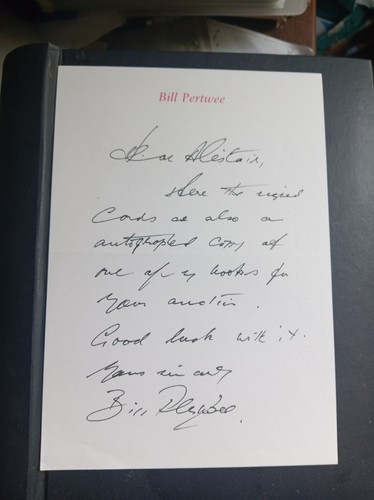 Bill Pertwee
Dear Alistair,
Here the signed
Cards as also a
autographed copy of
one of my books for
your auction.
Good luck with it.
Yours sincerely
Bill Pertwee.